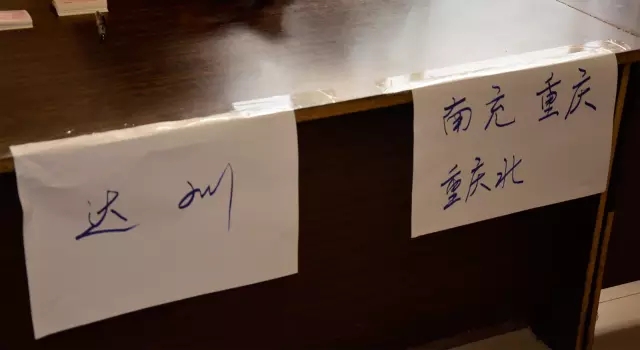 达州
南充 重庆
重庆北